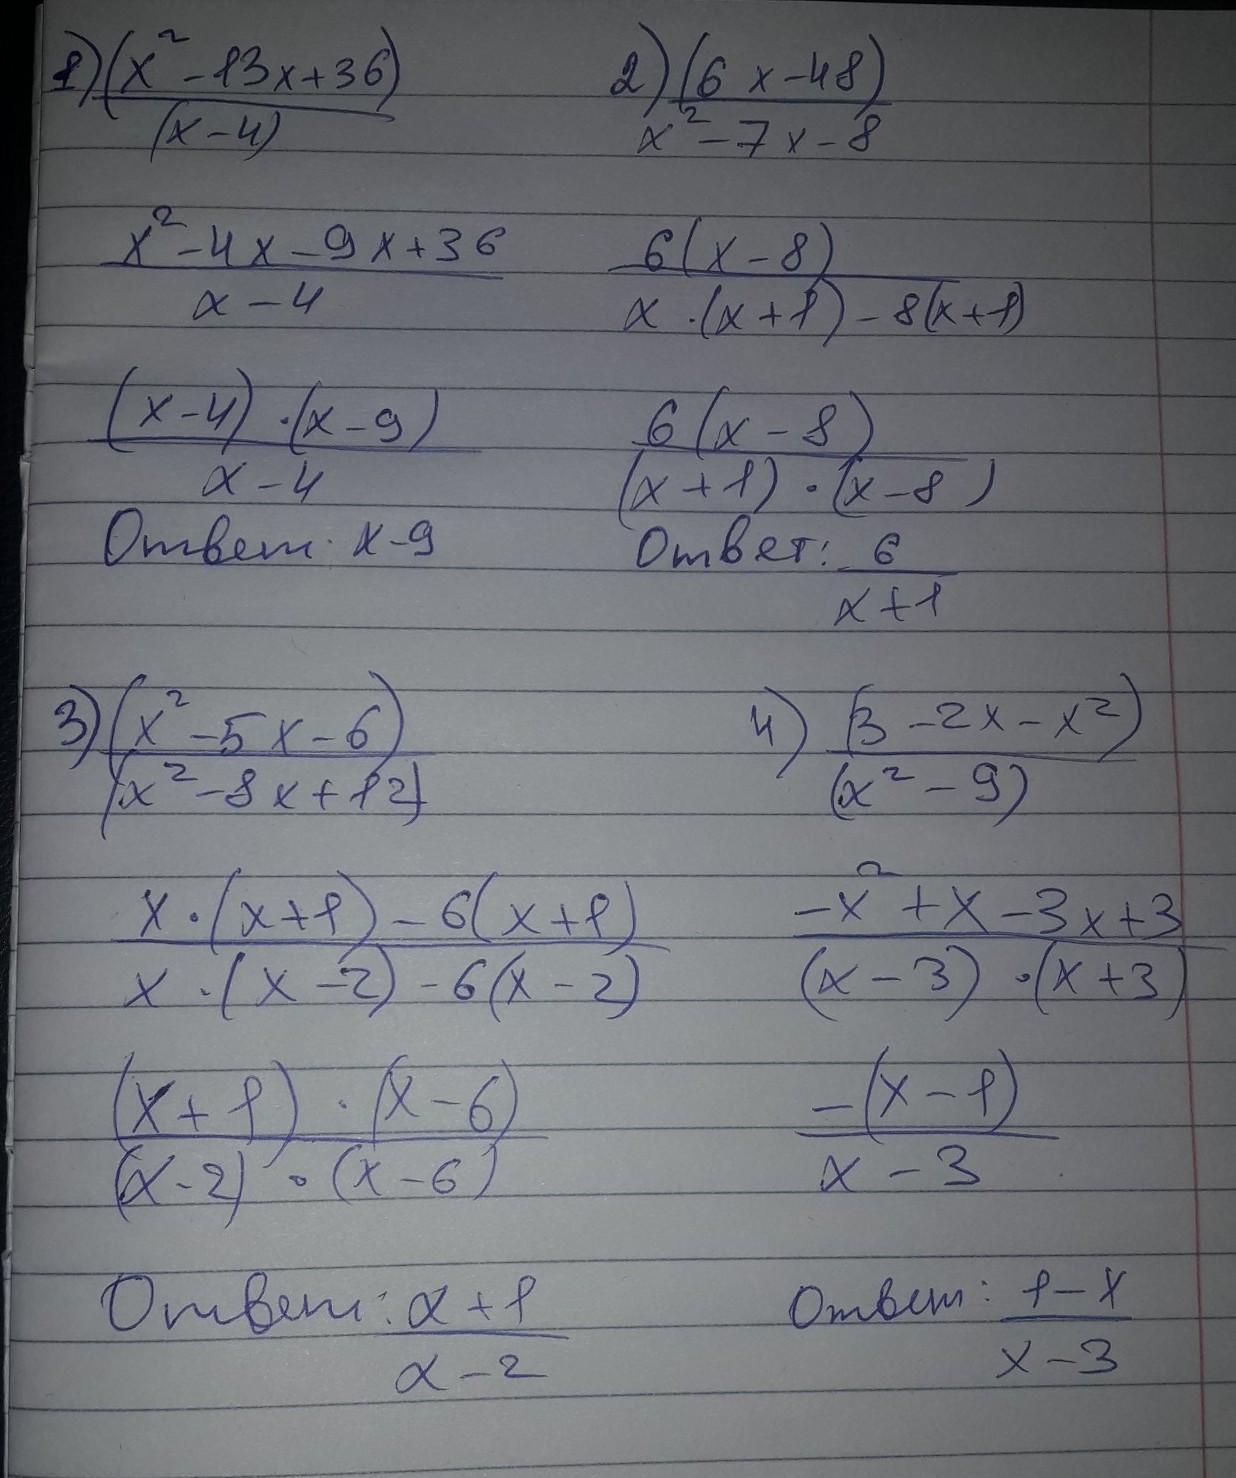 1) (x² - 13x + 36)
(x - 4)
x² - 4x - 9x + 36
x - 4
(x - 4) · (x - 9)
x - 4
Ответ: x - 9
2) (6x - 48)
x² - 7x - 8
6(x - 8)
x · (x + 1) - 8(x + 1)
6(x - 8)
(x + 1) · (x - 8)
Ответ: 6
x + 1
3) (x² - 5x - 6)
(x² - 8x + 12)
x · (x + 1) - 6(x + 1)
x · (x - 2) - 6(x - 2)
(x + 1) · (x - 6)
(x - 2) · (x - 6)
Ответ: x + 1
x - 2
4) (3 - 2x - x²)
(x² - 9)
-x² + x - 3x + 3
(x - 3) · (x + 3)
-(x - 1)
x - 3
Ответ: 1 - x
x - 3